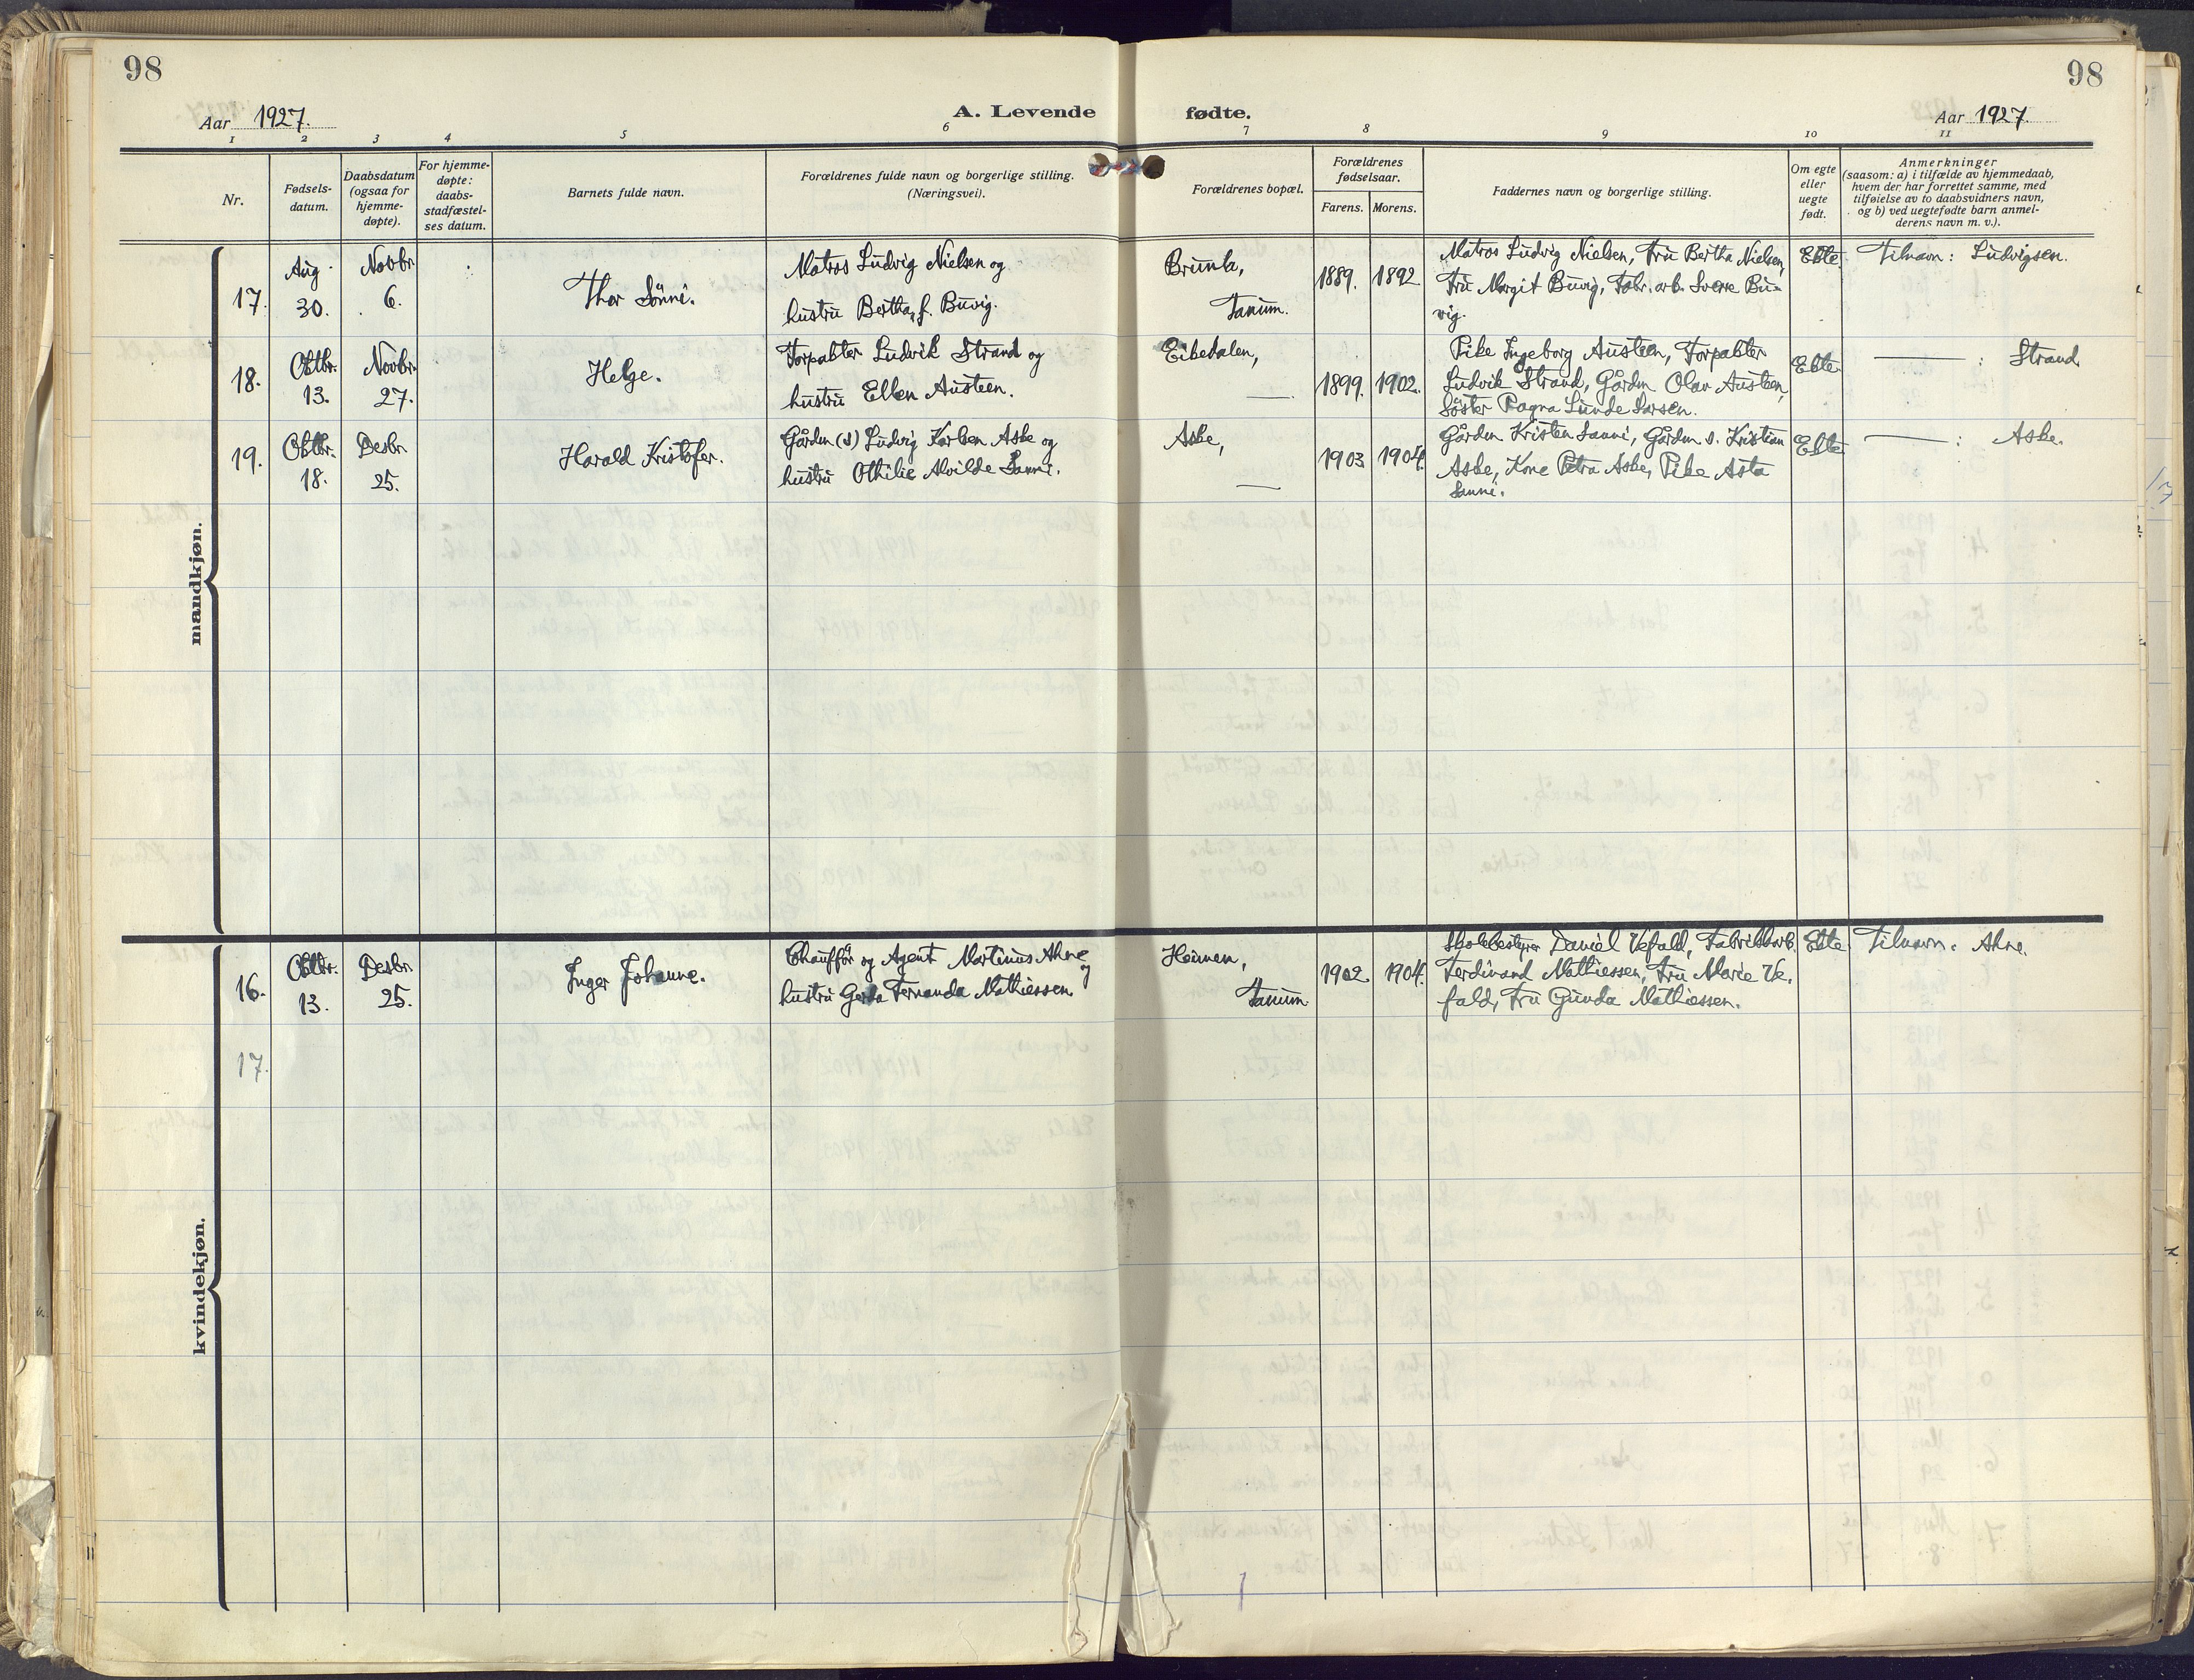 98
98
Aar 1927.
A. Levende fødte.
Aar 1927.
1 2 3 4 5 6 7 8 9 10 11
Nr.
Fødsels-
datum.
Daabsdatum
(ogsaa for
hjemme-
døpte).
For hjemme-
døpte:
daabs-
stadfæstel-
ses datum.
Barnets fulde navn.
Forældrenes fulde navn og borgerlige stilling.
(Næringsvei).
Forældrenes bopæl.
Forældrenes
fødselsaar.
Farens. Morens.
Faddernes navn og borgerlige stilling.
Om egte
eller
uegte
født.
Anmerkninger
(saasom: a) i tilfælde av hjemmedaab,
hvem der har forrettet samme, med
tilføielse av to daabsvidners navn,
og b) ved uegtefødte barn anmel-
derens navn m. v.).
mandkjøn.
17.
Aug.
30.
Novbr.
6.
Thor Sönni.
Matros Ludvig Nielsen og
hustru Bertha, f. Buvig.
Brunla,
Tanum.
1889. 1892
Matros Ludvig Nielsen, Fru Bertha Nielsen,
Fru Margit Buvig, Fabr. arb. Sverre Bu-
vig.
Ekte.
Tilnavn: Ludvigsen.
18.
Oktbr.
13.
Novbr.
27.
Helge.
Forpakter Ludvik Strand og
hustru Ellen Austeen.
Eikedalen,
—
1899. 1902.
Pike Ingeborg Austeen, Forpakter
Ludvik Strand, Gårdm Olav Austeen,
Söster Ragna Lunde Larsen.
Ekte
— : Strand
19.
Oktbr.
18.
Desbr.
25.
Harald Kristofer.
Gårdm (s) Ludvig Karlsen Aske og
hustru Othilie Alvilde Sanni.
Aske,
—
1903 1904.
Gårdm Kristen Sanni, Gårdm. s. Kristian
Aske, Kone Petra Aske, Pike Asta
Sanni.
Ekte
— : Aske.
kvindekjøn.
16.
Oktbr.
13.
Desbr.
25.
Inger Johanne.
Chauffør og Agent Martinus Ahne og
hustru Gerda Fernanda Mathiessen
Heimen,
Tanum
1902 1904.
Skolebestyrer Daniel Vefald, Fabrikkarb.
Ferdinand Mathiessen, Fru Marie Ve-
fald, Fru Gunda Mathiessen.
Ekte
Tilnavn: Ahne.
17.